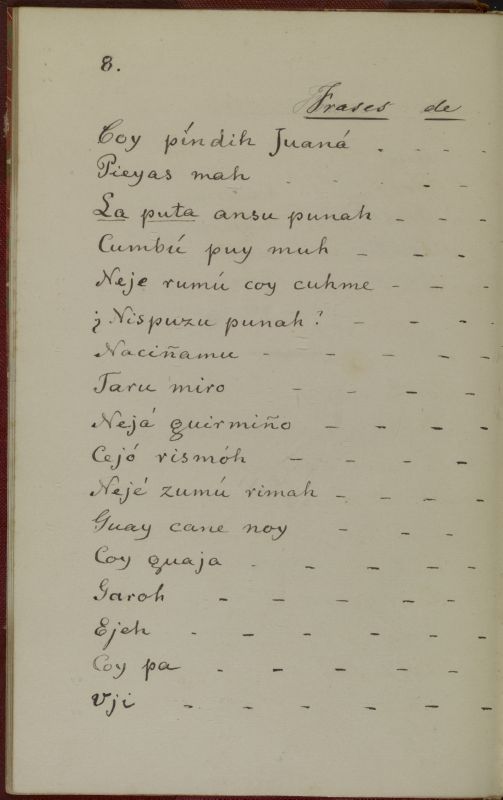 8.
Frases de
Coy píndih Juaná . - - -
Pieyas mah . . - -
La puta ansu punah - - -
Cumbú puy muh - - -
Neje rumú coy cuhme - - -
¿Nispuzu punah? - - -
Naciñamu - - - - -
Taru miro - - - -
Nejá guirmiño - - - -
Cejó rismóh - - - -
Nejé zumú rimah - - - -
Guay cane noy - - -
Coy guaja . - - - -
Garoh - - - - -
Ejeh . - - - - -
Coy pa . - - - -
Uji - - - - - -